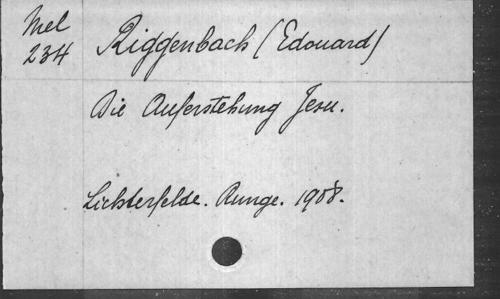 Mel
234
Riggenbach (Edouard)
Die Auferstehung Jesu.
Lichterfelde. Runge. 1908.